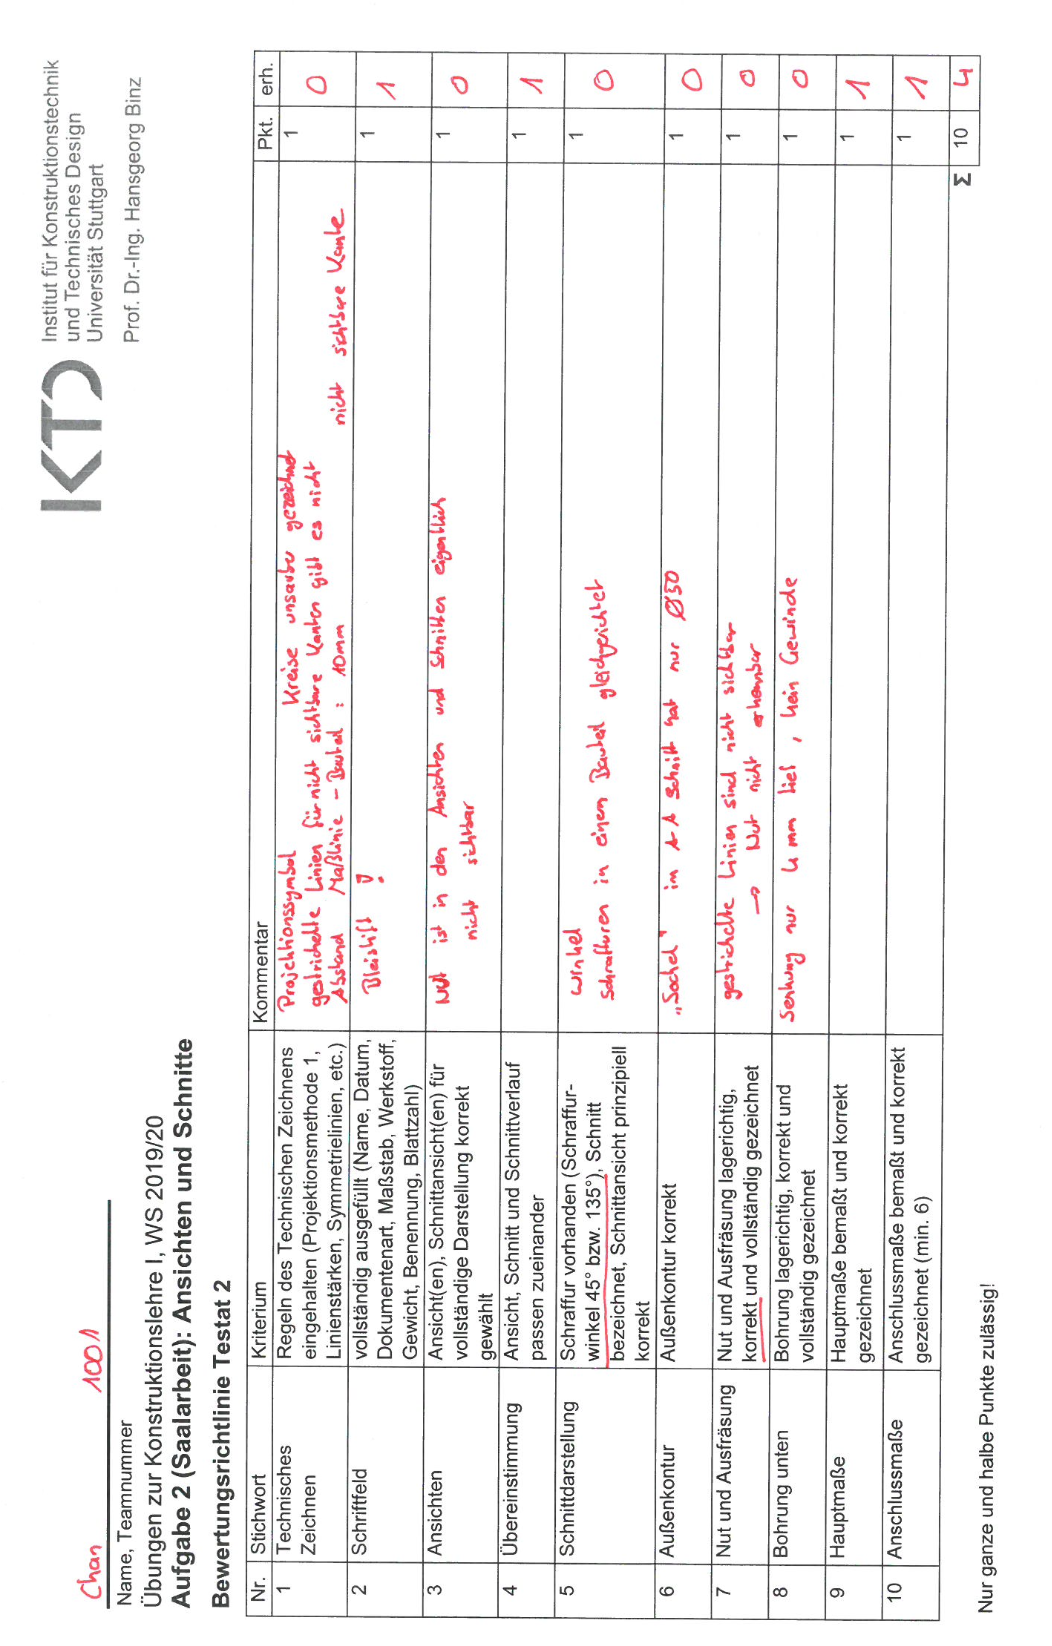 KTD
Institut für Konstruktionstechnik
und Technisches Design
Universität Stuttgart
Prof. Dr.-Ing. Hansgeorg Binz
Chan 1001
Name, Teamnummer
Übungen zur Konstruktionslehre I, WS 2019/20
Aufgabe 2 (Saalarbeit): Ansichten und Schnitte
Bewertungsrichtlinie Testat 2
Nr. Stichwort Kriterium Kommentar Pkt. erh.
1 Technisches Zeichnen
Regeln des Technischen Zeichnens
eingehalten (Projektionsmethode 1,
Linienstärken, Symmetrielinien, etc.)
Projektionssymbol Kreise unsauber gezeichnet
gestrichelte Linien für nicht sichtbare Kanten gibt es nicht
Abstand Maßlinie - Bauteil : 10mm nicht sichtbare Kante
1 0
2 Schriftfeld
vollständig ausgefüllt (Name, Datum,
Dokumentenart, Maßstab, Werkstoff,
Gewicht, Benennung, Blattzahl)
Bleistift !
1 1
3 Ansichten
Ansicht(en), Schnittansicht(en) für
vollständige Darstellung korrekt
gewählt
Nut ist in den Ansichten und Schnitten eigentlich
nicht sichtbar
1 0
4 Übereinstimmung
Ansicht, Schnitt und Schnittverlauf
passen zueinander
1 1
5 Schnittdarstellung
Schraffur vorhanden (Schraffur-
winkel 45° bzw. 135°), Schnitt
bezeichnet, Schnittansicht prinzipiell
korrekt
Winkel
Schraffuren in einem Bauteil gleichgerichtet
1 0
6 Außenkontur
Außenkontur korrekt
„Sockel“ im A-A Schnitt hat nur Ø50
1 0
7 Nut und Ausfräsung
Nut und Ausfräsung lagerichtig,
korrekt und vollständig gezeichnet
gestrichelte Linien sind nicht sichtbar
→ Nut nicht erkennbar
1 0
8 Bohrung unten
Bohrung lagerichtig, korrekt und
vollständig gezeichnet
Senkung nur 4 mm tief, kein Gewinde
1 0
9 Hauptmaße
Hauptmaße bemaßt und korrekt
gezeichnet
1 1
10 Anschlussmaße
Anschlussmaße bemaßt und korrekt
gezeichnet (min. 6)
1 1
Σ 10 4
Nur ganze und halbe Punkte zulässig!